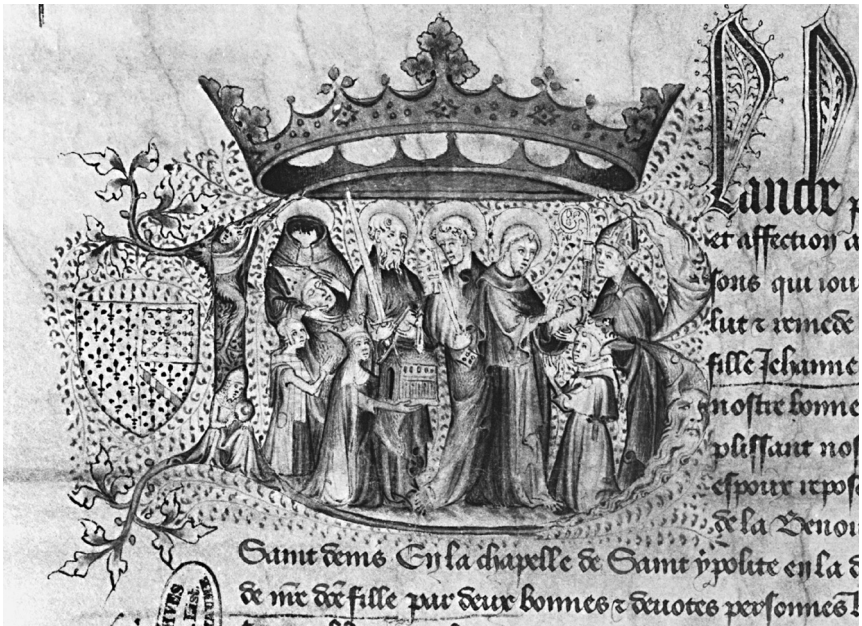 Blanche p
et affection a
sons qui iou
lut z remede
fille Jehanne
nostre bonne
plissant nos
espoux repos
de la Benoi
Saint denis En la chapelle de Saint ypolite en la d
de nre dce fille par deux bonnes z devotes personnes